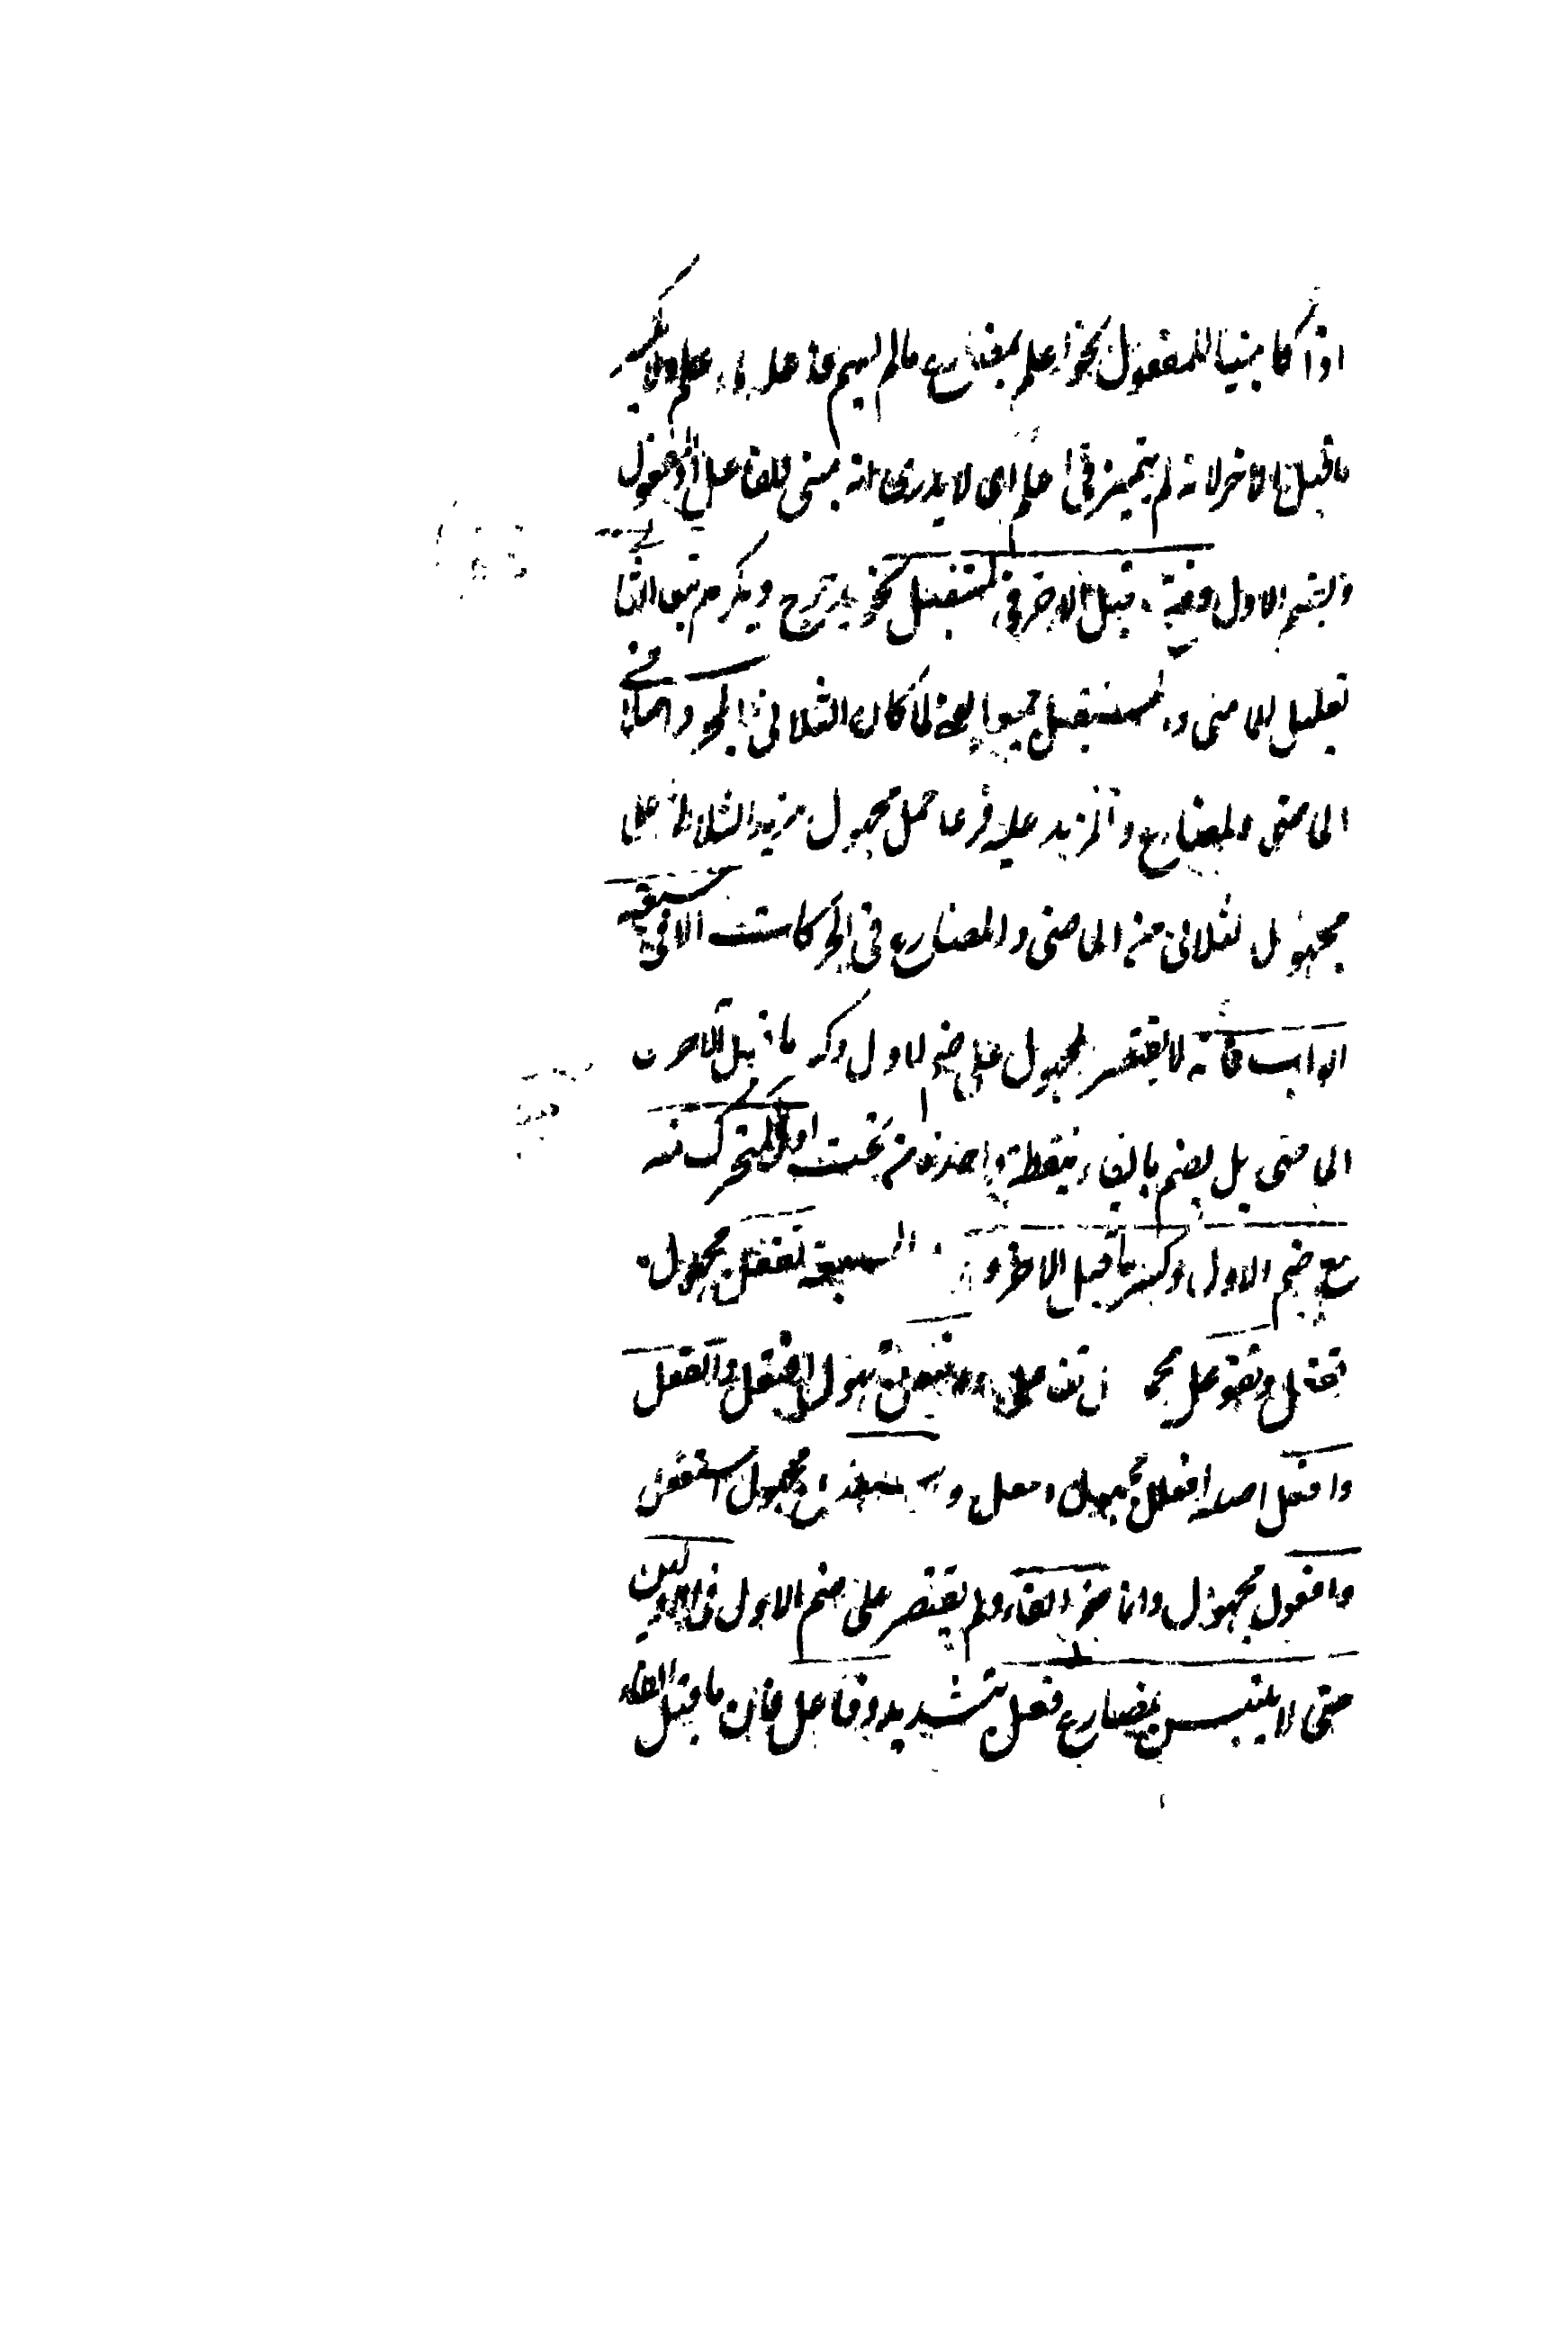 اذا كا مبنيا للمفعول نحو اعلم بمضارع مالم يسم فاعله علم ولا بكسر
ما قبل الاخر لانه لم يتميز في اعلم اى لا يدرى انه مبنى للفاعل او المفعول
وبضم الاول وفتح ما قبل الاخر في المستقبل نحو يدحرج ويكرم تبعا للثلا
تعليل للماضى والمستقبل جميعا يعنى لما كان الثلاثى المجرد اصلا في
الماضى والمضارع والمزيد عليه فرعا حمل مجهول مزيد الثلاثى على
مجهول الثلاثى من الماضى والمضارع في الحركات الا في سبعة
ابواب فانه لا يقتصر المجهول على ضم الاول وكسر ما قبل الاخر
الماضى بل يضم بالفاء بنقطة واحدة من تحت اول المتحرك منه
مع ضم الاول وكسر ما قبل الاخر و السبعة تفعل مجهول
تفعل وتفوعل مجهول تفاعل وافتعل مجهول افتعل وانفعل
وافعل اصله افعلل مجهول افعل واستفعل مجهول استفعل
وافعول مجهول وانما ضم الفاء ولم يقتصر على ضم الاول في الاولين
حتى لا يلتبس بمضارع فعل بتشديد وفاعل فان ما قبل الفاء